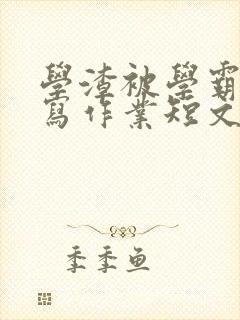 學渣被學霸
寫作業短文
季季魚